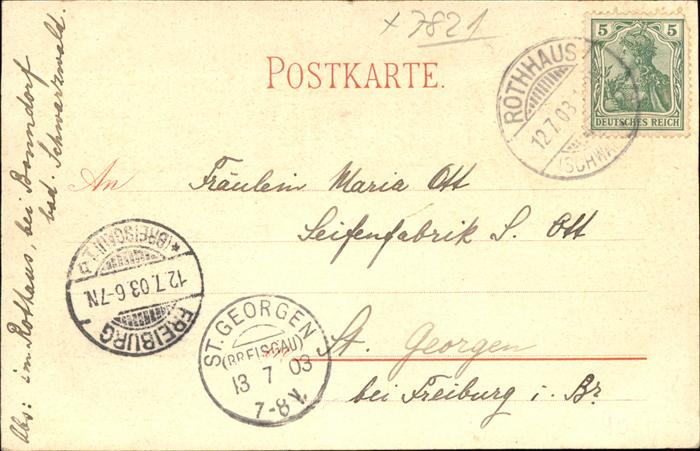 x 7821
5 5
DEUTSCHES REICH
POSTKARTE.
ROTHHAUS
12.7.03
(SCHW
An Fräulein Maria Ott
Seifenfabrik S. Ott
St. Georgen
bei Freiburg i. Br.
FREIBURG
12.7.03.6-7N.
* (BREISGAU)
ST. GEORGEN
(BREISGAU)
13 7 03
7-8 V.
Abs: im Rothaus, bei Bonndorf
bad. Schwarzwald.